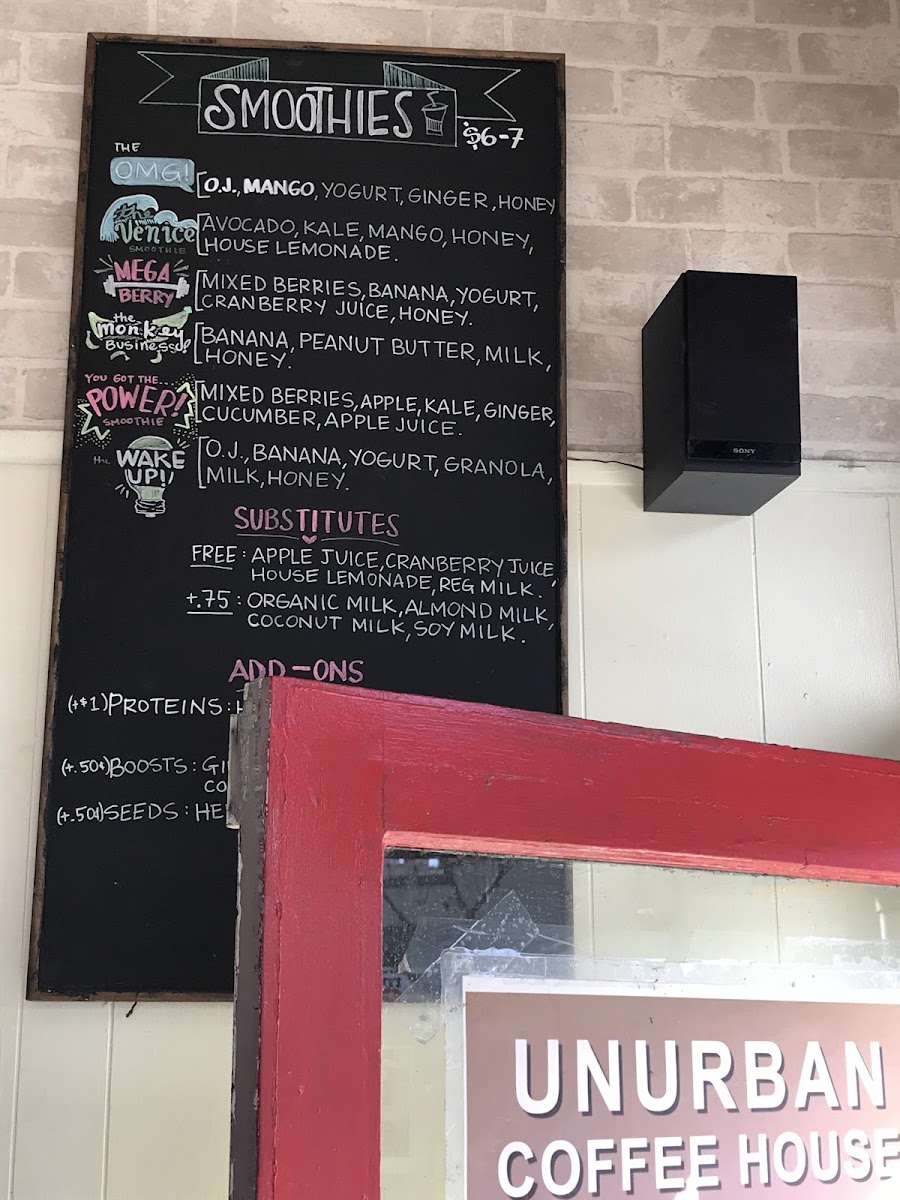 SMOOTHIES
$6-7
THE
OMG!
O.J., MANGO, YOGURT, GINGER, HONEY
the Venice
SMOOTHIE
AVOCADO, KALE, MANGO, HONEY,
HOUSE LEMONADE.
MEGA
BERRY
MIXED BERRIES, BANANA, YOGURT,
CRANBERRY JUICE, HONEY.
the
monkey
BUSINESS
BANANA, PEANUT BUTTER, MILK,
HONEY.
YOU GOT THE....
POWER!
SMOOTHIE
MIXED BERRIES, APPLE, KALE, GINGER,
CUCUMBER, APPLE JUICE.
the WAKE
UP!!
O.J., BANANA, YOGURT, GRANOLA,
MILK, HONEY.
SUBSTITUTES
FREE: APPLE JUICE, CRANBERRY JUICE,
HOUSE LEMONADE, REG MILK.
+.75: ORGANIC MILK, ALMOND MILK,
COCONUT MILK, SOY MILK.
ADD-ONS
(+$1) PROTEINS:
(+.50¢) BOOSTS:
(+.50¢) SEEDS:
SONY
UNURBAN
COFFEE HOUSE